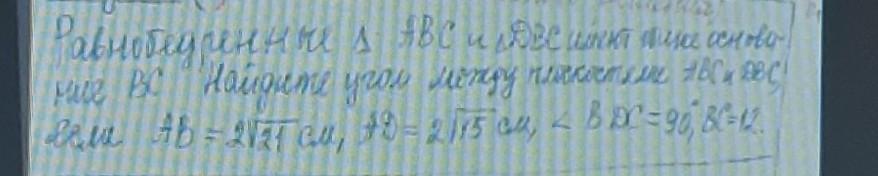 Равнобедренные Δ ABC и ΔDBC имеют общее основа-
ние BC Найдите угол между плоскостями ABC и DBC,
если AB = 2√21 см, AD = 2√15 см, < BDC = 90°, BC=12.